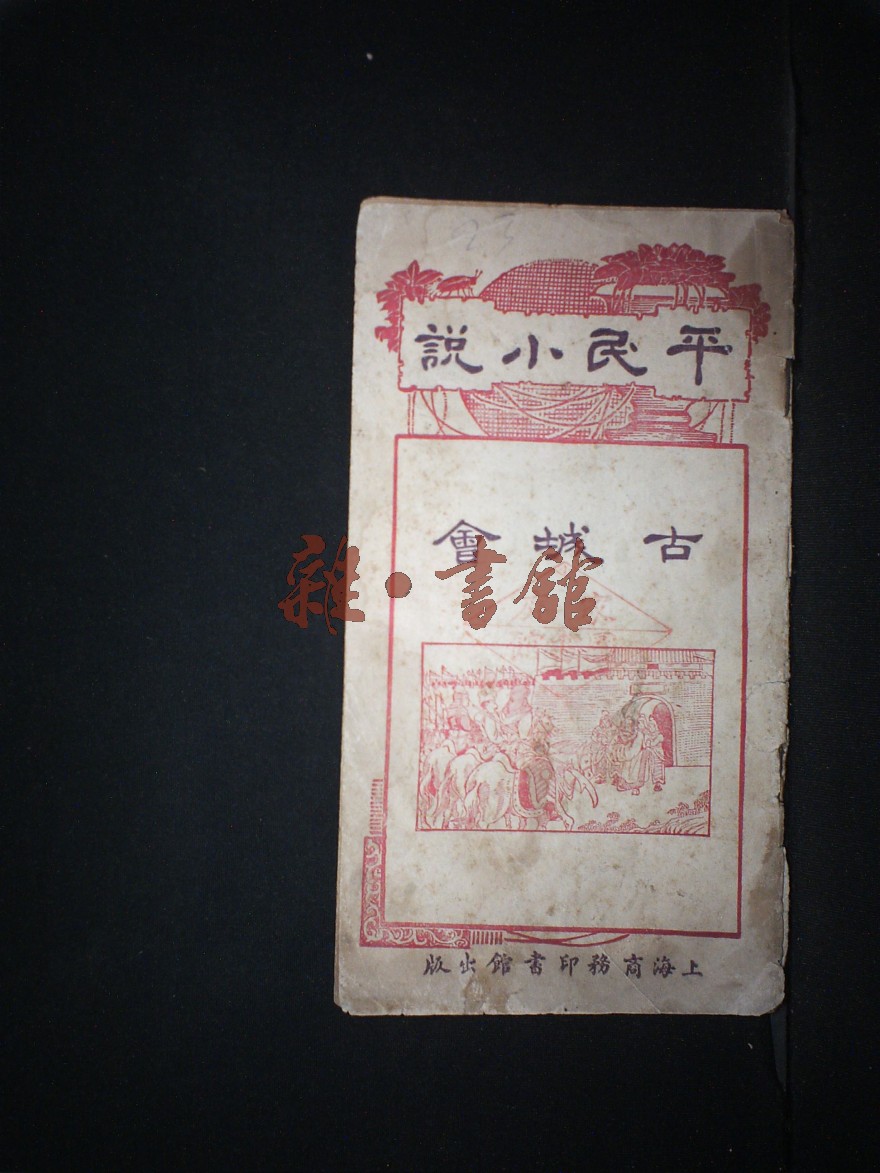 平民小說
古城會
雜·書館
上海商務印書館出版